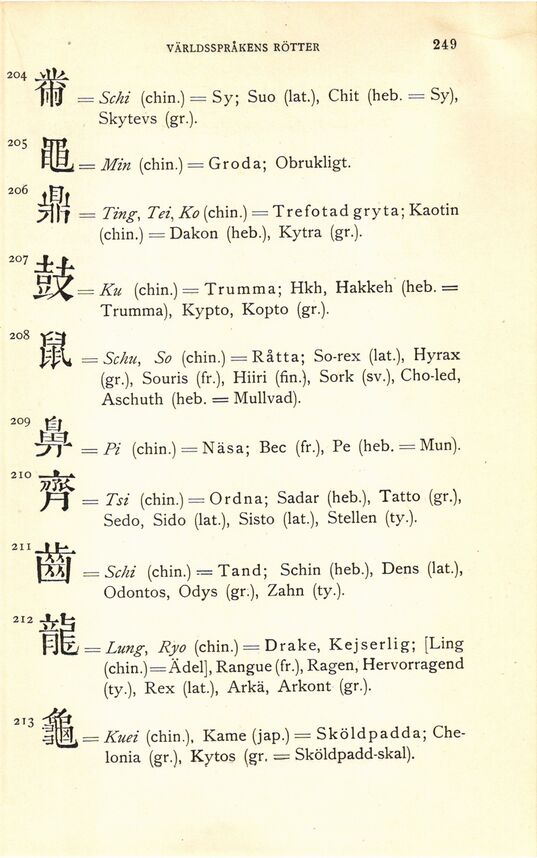 VÄRLDSSPRÅKENS RÖTTER 249
204 黹 = Schi (chin.) = Sy; Suo (lat.), Chit (heb. = Sy),
Skytevs (gr.).
205 黽 = Min (chin.) = Groda; Obrukligt.
206 鼎 = Ting, Tei, Ko (chin.) = Trefotad gryta; Kaotin
(chin.) = Dakon (heb.), Kytra (gr.).
207 鼓 = Ku (chin.) = Trumma; Hkh, Hakkeh (heb. =
Trumma), Kypto, Kopto (gr.).
208 鼠 = Schu, So (chin.) = Råtta; So-rex (lat.), Hyrax
(gr.), Souris (fr.), Hiiri (fin.), Sork (sv.), Cho-led,
Aschuth (heb. = Mullvad).
209 鼻 = Pi (chin.) = Näsa; Bec (fr.), Pe (heb. = Mun).
210 齊 = Tsi (chin.) = Ordna; Sadar (heb.), Tatto (gr.),
Sedo, Sido (lat.), Sisto (lat.), Stellen (ty.).
211 齒 = Schi (chin.) = Tand; Schin (heb.), Dens (lat.),
Odontos, Odys (gr.), Zahn (ty.).
212 龍 = Lung, Ryo (chin.) = Drake, Kejserlig; [Ling
(chin.) = Ädel], Rangue (fr.), Ragen, Hervorragend
(ty.), Rex (lat.), Arkä, Arkont (gr.).
213 龜 = Kuei (chin.), Kame (jap.) = Sköldpadda; Che-
lonia (gr.), Kytos (gr. = Sköldpadd-skal).